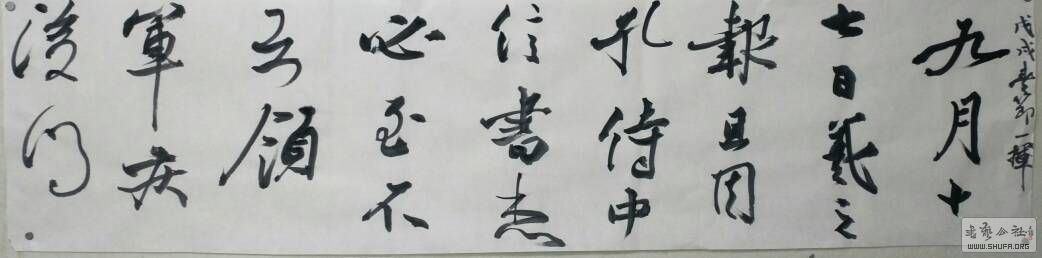 戊戌春節一揮
九月十
七日羲之
報且因
孔侍中
信書想
必至不
知領
軍疾
後問
書藝公社
WWW.SHUFA.ORG